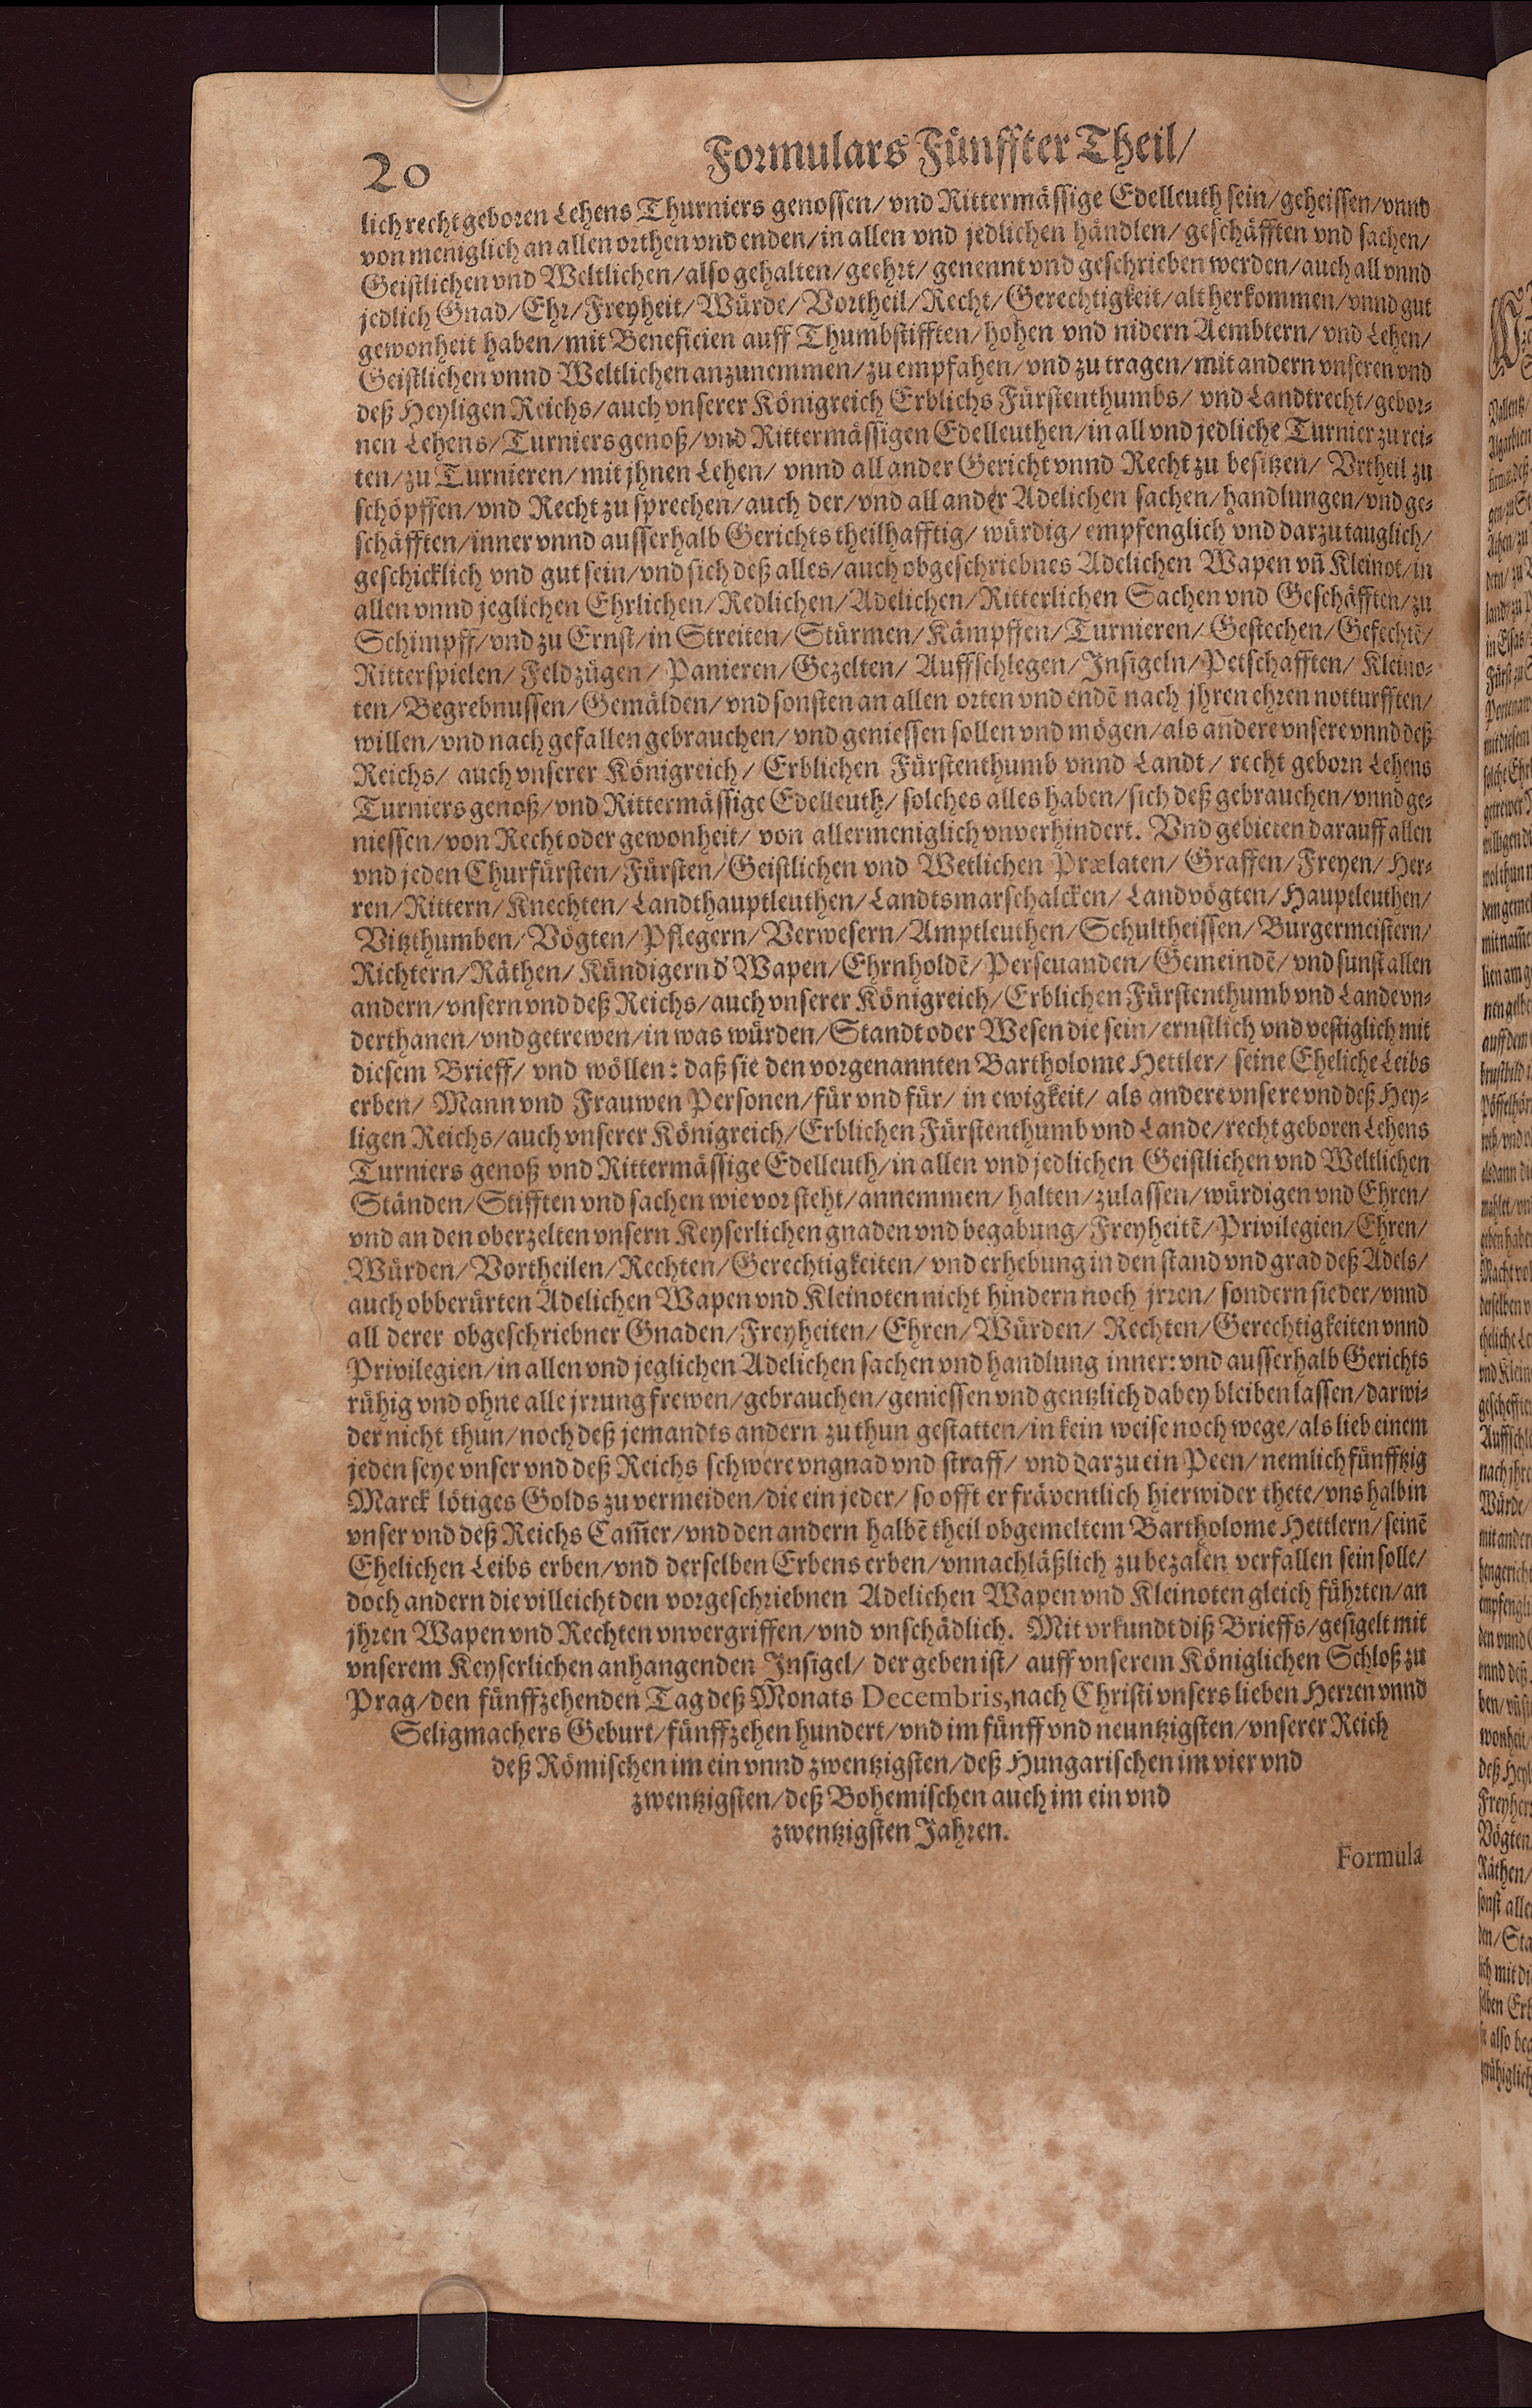 20 Formulars Fünffter Theil/
lich recht geboren Lehens Thurniers genossen/ vnd Rittermässige Edelleuth sein/ geheissen/ vnnd
von meniglich an allen orthen vnd enden/ in allen vnd jedlichen händlen/ geschäfften vnd sachen/
Geistlichen vnd Weltlichen/ also gehalten/ geehrt/ genennt vnd geschrieben werden/ auch all vnnd
jedlich Gnad/ Ehr/ Freyheit/ Würde/ Vortheil/ Recht/ Gerechtigkeit/ alt herkommen/ vnnd gut
gewonheit haben/ mit Beneficien auff Thumbstifften/ hohen vnd nidern Aembtern/ vnd Lehen/
Geistlichen vnnd Weltlichen anzunemmen/ zu empfahen/ vnd zu tragen/ mit andern vnseren vnd
deß Heyligen Reichs/ auch vnserer Königreich Erblichs Fürstenthumbs/ vnd Landtrecht/ gebor-
nen Lehens/ Turniersgenoß/ vnd Rittermässigen Edelleuthen/ in all vnd jedliche Turnier zu rei-
ten/ zu Turnieren/ mit jhnen Lehen/ vnnd all ander Gericht vnnd Recht zu besitzen/ Vrtheil zu
schöpffen/ vnd Recht zu sprechen/ auch der/ vnd all ander Adelichen sachen/ handlungen/ vnd ge-
schäfften/ inner vnnd ausserhalb Gerichts theilhafftig/ würdig/ empfenglich vnd darzu tauglich/
geschicklich vnd gut sein/ vnd sich deß alles/ auch obgeschriebnes Adelichen Wapen vn̄ Kleinot/ in
allen vnnd jeglichen Ehrlichen/ Redlichen/ Adelichen/ Ritterlichen Sachen vnd Geschäfften/ zu
Schimpff/ vnd zu Ernst/ in Streiten/ Stürmen/ Kämpffen/ Turnieren/ Gestechen/ Gefechtē/
Ritterspielen/ Feldzügen/ Panieren/ Gezelten/ Auffschlegen/ Insigeln/ Petschafften/ Kleino-
ten/ Begrebnussen/ Gemälden/ vnd sonsten an allen orten vnd endē nach jhren ehren notturfften/
willen/ vnd nach gefallen gebrauchen/ vnd geniessen sollen vnd mögen/ als andere vnsere vnnd deß
Reichs/ auch vnserer Königreich/ Erblichen Fürstenthumb vnnd Landt/ recht geborn Lehens
Turniersgenoß/ vnd Rittermässige Edelleuth/ solches alles haben/ sich deß gebrauchen/ vnnd ge-
niessen/ von Recht oder gewonheit/ von allermeniglich vnverhindert. Vnd gebieten darauff allen
vnd jeden Churfürsten/ Fürsten/ Geistlichen vnd Wetlichen Prælaten/ Graffen/ Freyen/ Her-
ren/ Rittern/ Knechten/ Landthauptleuthen/ Landtsmarschalcken/ Landvögten/ Hauptleuthen/
Vitzthumben/ Vögten/ Pflegern/ Verwesern/ Amptleuthen/ Schultheissen/ Burgermeistern/
Richtern/ Räthen/ Kündigern d' Wapen/ Ehrnholdē/ Persevanden/ Gemeindē/ vnd sunst allen
andern/ vnsern vnd deß Reichs/ auch vnserer Königreich/ Erblichen Fürstenthumb vnd Lande vn-
derthanen/ vnd getrewen/ in was würden/ Standt oder Wesen die sein/ ernstlich vnd vestiglich mit
diesem Brieff/ vnd wöllen: daß sie den vorgenannten Bartholome Hettler/ seine Eheliche Leibs
erben/ Mann vnd Frauwen Personen/ für vnd für/ in ewigkeit/ als andere vnsere vnd deß Hey-
ligen Reichs/ auch vnserer Königreich/ Erblichen Fürstenthumb vnd Lande/ recht geboren Lehens
Turniers genoß vnd Rittermässige Edelleuth/ in allen vnd jedlichen Geistlichen vnd Weltlichen
Ständen/ Stifften vnd sachen wie vor steht/ annemmen/ halten/ zulassen/ würdigen vnd Ehren/
vnd an den oberzelten vnsern Keyserlichen gnaden vnd begabung/ Freyheitē/ Privilegien/ Ehren/
Würden/ Vortheilen/ Rechten/ Gerechtigkeiten/ vnd erhebung in den stand vnd grad deß Adels/
auch obberürten Adelichen Wapen vnd Kleinoten nicht hindern noch jrren/ sondern sie der/ vnnd
all derer obgeschriebner Gnaden/ Freyheiten/ Ehren/ Würden/ Rechten/ Gerechtigkeiten vnnd
Privilegien/ in allen vnd jeglichen Adelichen sachen vnd handlung inner: vnd ausserhalb Gerichts
rühig vnd ohne alle jrrung frewen/ gebrauchen/ geniessen vnd gentzlich dabey bleiben lassen/ darwi-
der nicht thun/ noch deß jemandts andern zu thun gestatten/ in kein weise noch wege/ als lieb einem
jeden seye vnser vnd deß Reichs schwere vngnad vnd straff/ vnd darzu ein Peen/ nemlich fünfftzig
Marck lötiges Golds zu vermeiden/ die ein jeder/ so offt er fräventlich hierwider thete/ vns halb in
vnser vnd deß Reichs Cam̄er/ vnd den andern halbē theil obgemeltem Bartholome Hettlern/ seinē
Ehelichen Leibs erben/ vnd derselben Erbens erben/ vnnachläßlich zu bezalen verfallen sein solle/
doch andern die villeicht den vorgeschriebnen Adelichen Wapen vnd Kleinoten gleich führten/ an
jhren Wapen vnd Rechten vnvergriffen/ vnd vnschädlich. Mit vrkundt diß Brieffs/ gesigelt mit
vnserem Keyserlichen anhangenden Insigel/ der geben ist/ auff vnserem Königlichen Schloß zu
Prag/ den fünffzehenden Tag deß Monats Decembris, nach Christi vnsers lieben Herren vnnd
Seligmachers Geburt/ fünffzehen hundert/ vnd im fünff vnd neuntzigsten/ vnserer Reich
deß Römischen im ein vnnd zwentzigsten/ deß Hungarischen im vier vnd
zwentzigsten/ deß Bohemischen auch im ein vnd
zwentzigsten Jahren.
Formula